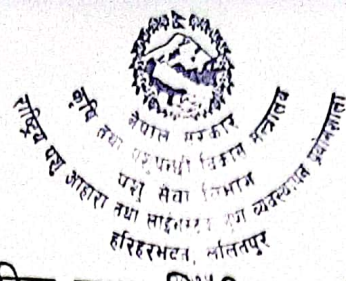 नेपाल सरकार
कृषि तथा पशुपन्छी विकास मन्त्रालय
पशु सेवा विभाग
राष्ट्रिय पशु आहारा तथा व्यवस्थापन प्रयोगशाला
हरिहरभवन, ललितपुर